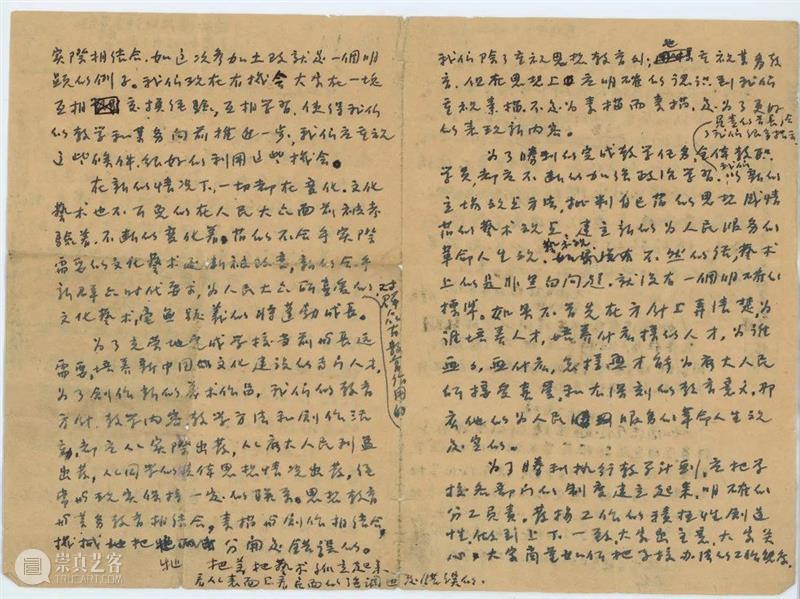 实际相结合。如这次参加土改就是一个明
显的例子。我们现在有机会大家在一块
互相交换经验，互相学习，使得我们
的教学和业务向前推进一步，我们应重视
这些条件，很好的利用这些机会。
在新的情况下，一切都在变化，文化
艺术也不可免的在人民大众面前被考
验着，不断的变化着。旧的不合乎实际
需要的文化艺术逐渐被改造，新的合乎
新民主主义时代要求，为人民大众所喜爱的
文化艺术，毫无疑义的将蓬勃成长。
对群众有教育作用的
为了完满地完成学校当前的长远
需要，培养新中国文化建设的有为人才，
为了创作新的美术作品，我们的教育
方针、教学内容教学方法和创作活
动，都应从实际出发，从广大人民利益
出发，从同学的具体思想情况出发，经
常的现实保持一定的联系。思想教育
与业务教育相结合，素描与创作相结合，
机械地把它分开是错误的。
把美把艺术孤立起来
看从表面上看片面的强调也是错误的。
我们除了重视思想教育外，也重视业务教
育。但在思想上应明确的认识到我们
重视素描不是为素描而素描，是为了更好
的表现新内容。
为了胜利的完成教学任务，全体教职
学员，都应不断的加强政治学习。我们以新的
立场观点方法，批判自己旧的思想感情
旧的艺术观点，建立新的为人民服务的
革命人生观，艺术观。不然的话，艺术
上的是非黑白问题，就没有一个明确的
标准。如果不首先在方针上弄清楚为
谁培养人才，培养什么样的人才，为谁
画，画什么，怎样画才能为广大人民
所接受喜爱和有深刻的教育意义，那
么他的为人民服务的革命人生观
是空的。
为了胜利执行教学计划，应把学
校各部门的制度建立起来，明确的
分工负责。发扬工作的积极性创造
性，做到上下一致，大家出主意，大家关
心，大家商量如何把学校办法的工作做好。